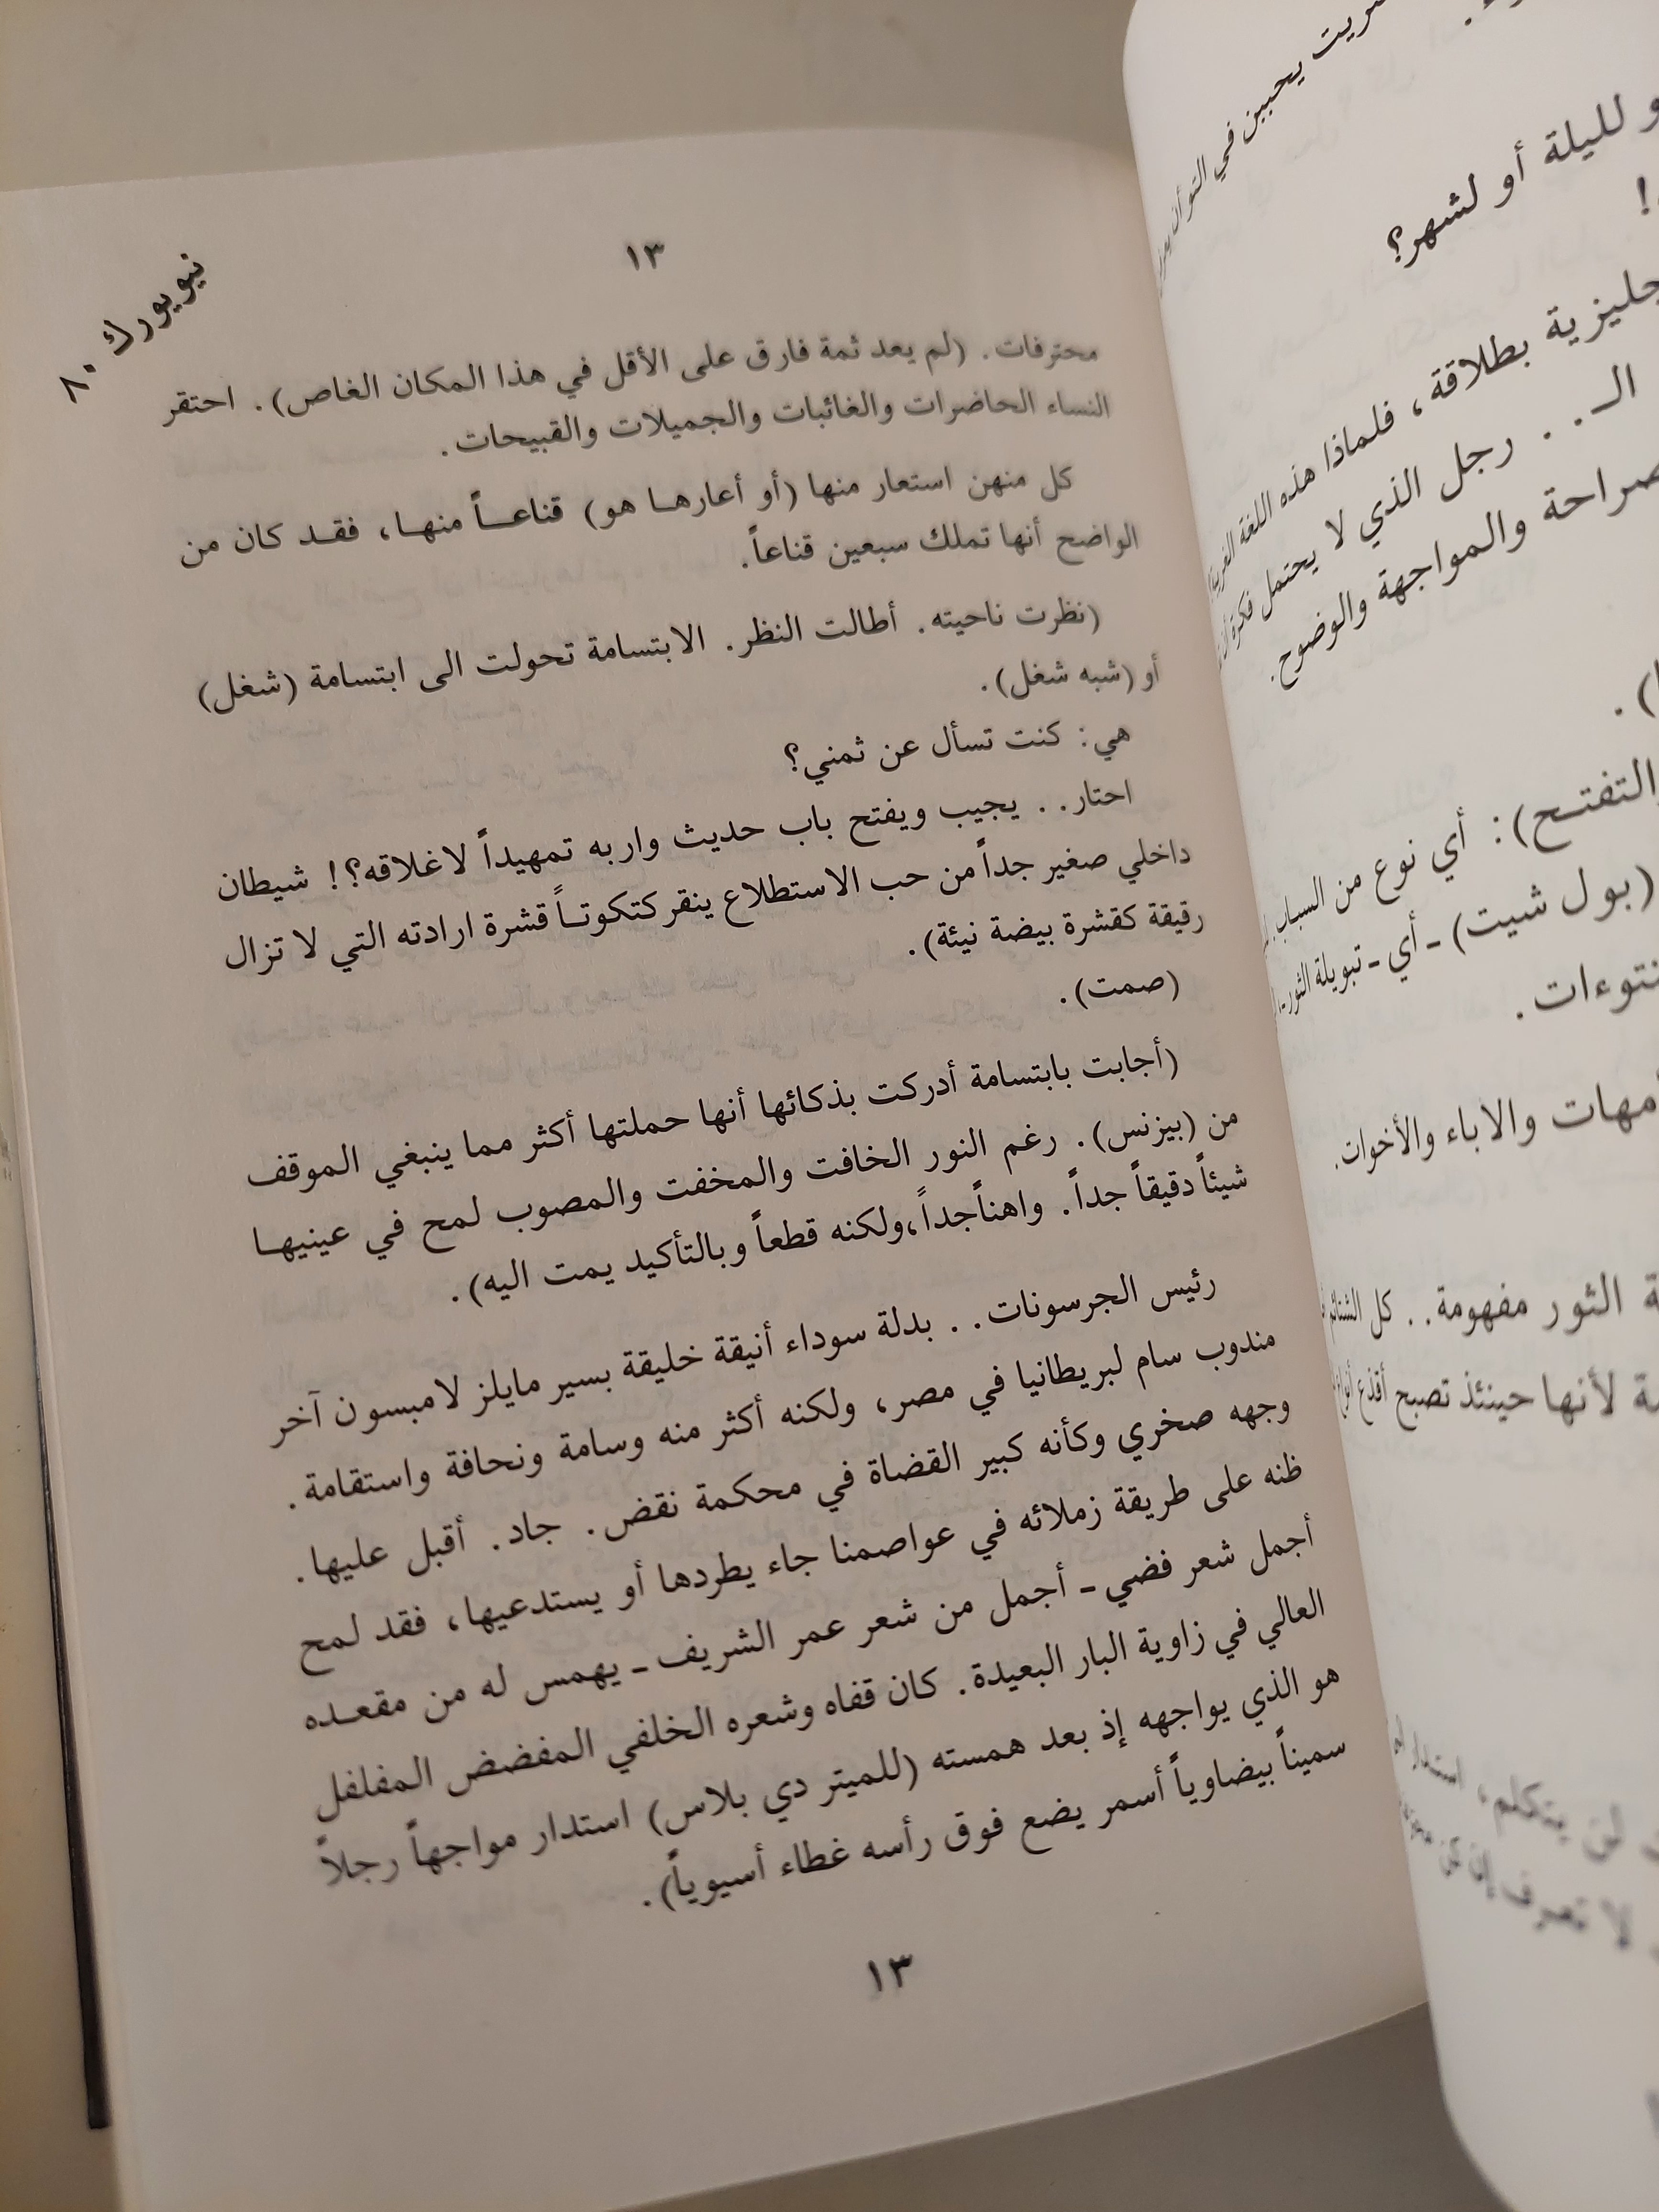 نيويورك ٨٠
١٣
محترفات. (لم يعد ثمة فارق على الأقل في هذا المكان الغاص). احتقر
النساء الحاضرات والغائبات والجميلات والقبيحات.
كل منهن استعار منها (أو أعارها هو) قناعاً منها، فقد كان من
الواضح أنها تملك سبعين قناعاً.
(نظرت ناحيته. أطالت النظر. الابتسامة تحولت الى ابتسامة (شغل)
أو (شبه شغل).
هي: كنت تسأل عن ثمني؟
احتار.. يجيب ويفتح باب حديث واربه تمهيداً لاغلاقه؟! شيطان
داخلي صغير جداً من حب الاستطلاع ينقر كتكوتاً قشرة ارادته التي لا تزال
رقيقة كقشرة بيضة نيئة).
(صمت).
(أجابت بابتسامة أدركت بذكائها أنها حملتها أكثر مما ينبغي الموقف
من (بيزنس). رغم النور الخافت والمخفت والمصوب لمح في عينيها
شيئاً دقيقاً جداً. واهناً جداً، ولكنه قطعاً وبالتأكيد يمت اليه).
رئيس الجرسونات.. بدلة سوداء أنيقة خليقة بسير مايلز لامبسون آخر
مندوب سام لبريطانيا في مصر، ولكنه أكثر منه وسامة ونحافة واستقامة.
وجهه صخري وكأنه كبير القضاة في محكمة نقض. جاد. أقبل عليها.
ظنه على طريقة زملائه في عواصمنا جاء يطردها أو يستدعيها، فقد لمح
أجمل شعر فضي ـ أجمل من شعر عمر الشريف ـ يهمس له من مقعده
العالي في زاوية البار البعيدة. كان قفاه وشعره الخلفي المفضض المفلفل
هو الذي يواجهه إذ بعد همسته (للميتر دي بلاس) استدار مواجهاً رجلاً
سميناً بيضاوياً أسمر يضع فوق رأسه غطاء أسيوياً).
١٣
يحببن في
و لليلة أو لشهر؟
!
بطلاقة، فلماذا هذه اللغة
الـ.. رجل الذي لا يحتمل فكرة
والمواجهة والوضوح.
أي نوع من السباب
(بول شيت) ـ أي ـ تبويلة الثور
نتوءات.
والاباء والأخوات.
الثور مفهومة.. كل الشتائم
لأنها حينئذ تصبح أقذع أنواع
لن يتكلم، استدار
لا تعرف